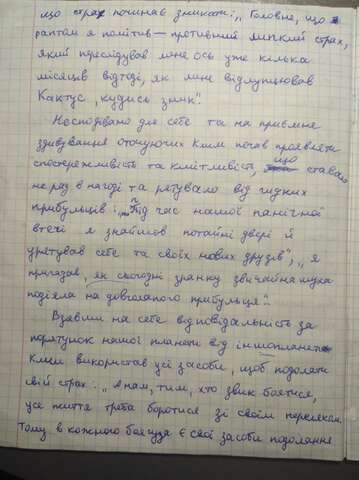 що страх починає зникати: „Головне, що
раптом я помітив — противний липкий страх,
який переслідував мене ось уже кілька
місяців відтоді, як мене відлупцював
Кактус, кудись зник".
Несподівано для себе та на приємне
здивування оточуючих Клим почав проявляти
спостережливість та кмітливість, що ставало
не раз в нагоді та рятувало від гидких
прибульців: „Під час нашої панічної
втечі я знайшов потайні двері й
урятував себе та своїх нових друзів", „я
пригадав, як сьогодні зранку звичайна муха
подіяла на довготелого прибульця".
Взявши на себе відповідальність за
порятунок нашої планети від іншопланетян
Клим використав усі засоби, щоб подолати
свій страх: „А нам, тим, хто звик боятися,
усе життя треба боротися зі своїм переляком.
Тому в кожного боягуза є свої засоби подолання